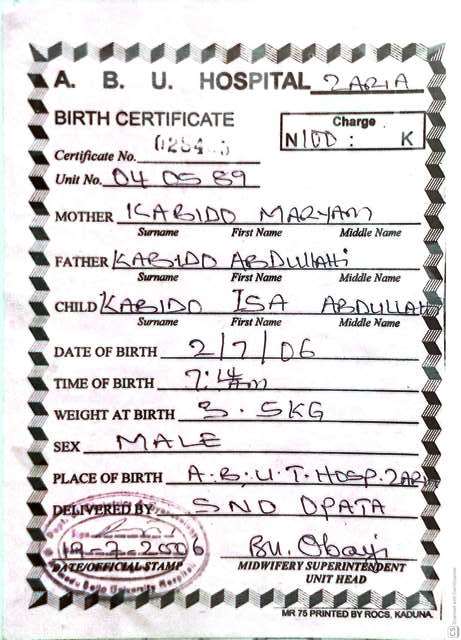 A. B. U. HOSPITAL ZARIA
BIRTH CERTIFICATE
Charge
N100 : K
Certificate No.
Unit No. 04 05 89
MOTHER KABIDO MARYAM
Surname First Name Middle Name
FATHER KABIDO ABDULLAHI
Surname First Name Middle Name
CHILD KABIDO ISA ABDULLAHI
Surname First Name Middle Name
DATE OF BIRTH 2/7/06
TIME OF BIRTH 7:14am
WEIGHT AT BIRTH 3.5KG
SEX MALE
PLACE OF BIRTH A.B.U.T.HOSP. ZARI
DELIVERED BY SND OPATA
19-7-2006
DATE/OFFICIAL STAMP
MIDWIFERY SUPERINTENDENT
UNIT HEAD
Bello University Hospital
MR 75 PRINTED BY ROCS, KADUNA.
CS